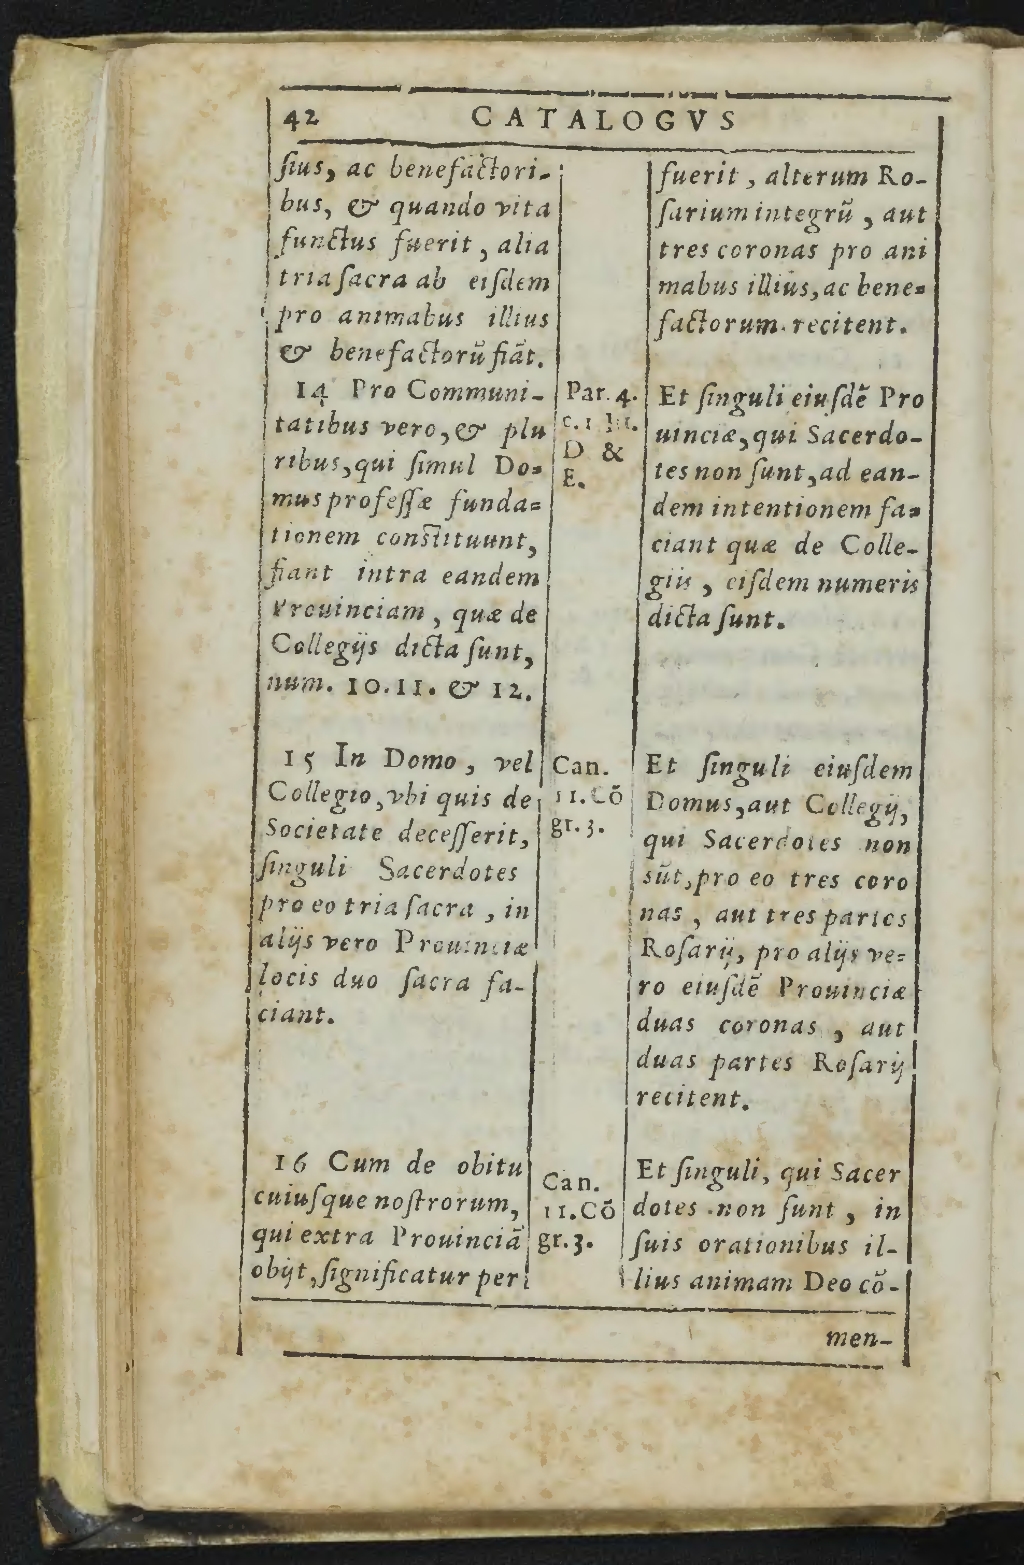 42 CATALOGVS
ſius, ac benefactori-
bus, & quando vita
functus fuerit, alia
tria ſacra ab eiſdem
pro animabus illius
& benefactorũ fiãt.
14 Pro Communi-
tatibus vero, & plu
ribus, qui ſimul Do-
mus profeſſæ funda-
tionem conſtituunt,
fiant intra eandem
Prouinciam, quæ de
Collegijs dicta ſunt,
num. 10. 11. & 12.
15 In Domo, vel
Collegio, vbi quis de
Societate deceſſerit,
ſinguli Sacerdotes
pro eo tria ſacra, in
alijs vero Prouinciæ
locis duo ſacra fa-
ciant.
16 Cum de obitu
cuiuſque noſtrorum,
qui extra Prouinciã
obijt, ſignificatur per
Par. 4.
c. 1 lit.
D &
E.
Can.
11. Cõ
gr. 3.
Can.
11. Cõ
gr. 3.
fuerit, alterum Ro-
ſarium integrũ, aut
tres coronas pro ani
mabus illius, ac bene-
factorum recitent.
Et ſinguli eiuſdẽ Pro
uinciæ, qui Sacerdo-
tes non ſunt, ad ean-
dem intentionem fa-
ciant quæ de Colle-
giis, eiſdem numeris
dicta ſunt.
Et ſinguli eiuſdem
Domus, aut Collegij,
qui Sacerdotes non
sũt, pro eo tres coro
nas, aut tres partes
Roſarij, pro alijs ve-
ro eiuſdẽ Prouinciæ
duas coronas, aut
duas partes Roſarij
recitent.
Et ſinguli, qui Sacer
dotes non ſunt, in
ſuis orationibus il-
lius animam Deo cõ-
men-